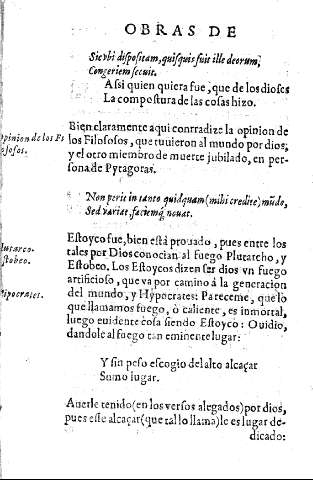 OBRAS DE
Sic vbi dispositam, quisquis fuit ille deorum,
Congeriem secuit.
Assi quien quiera fue, que de los dioses
La compostura de las cosas hizo.
Bien claramente aqui conrradize la opinion de
los Filosofos, que tuuieron al mundo por dios;
y el otro miembro de muerte jubilado, en per-
sona de Pytagoras.
opinion de los Fi
losofos.
Non perit in tanto quidquam (mihi credite) mũdo,
Sed variat, faciemq; nouat.
Estoyco fue, bien está prouado, pues entre los
tales por Dios conocian al fuego Plutarcho, y
Estobeo. Los Estoycos dizen ser dios vn fuego
artificioso, que va por camino á la generacion
del mundo, y Hypocrates: Pareceme, que lo
que llamamos fuego, ò caliente, es inmortal,
luego euidente cosa siendo Estoyco: Ouidio,
dandole al fuego tan eminente lugar:
Plutarco.
Estobeo.
Hipocrates.
Y sin peso escogio del alto alcaçar
Sumo lugar.
Auerle tenido (en los versos alegados) por dios,
pues este alcaçar (que tal lo llama) le es lugar de-
dicado: